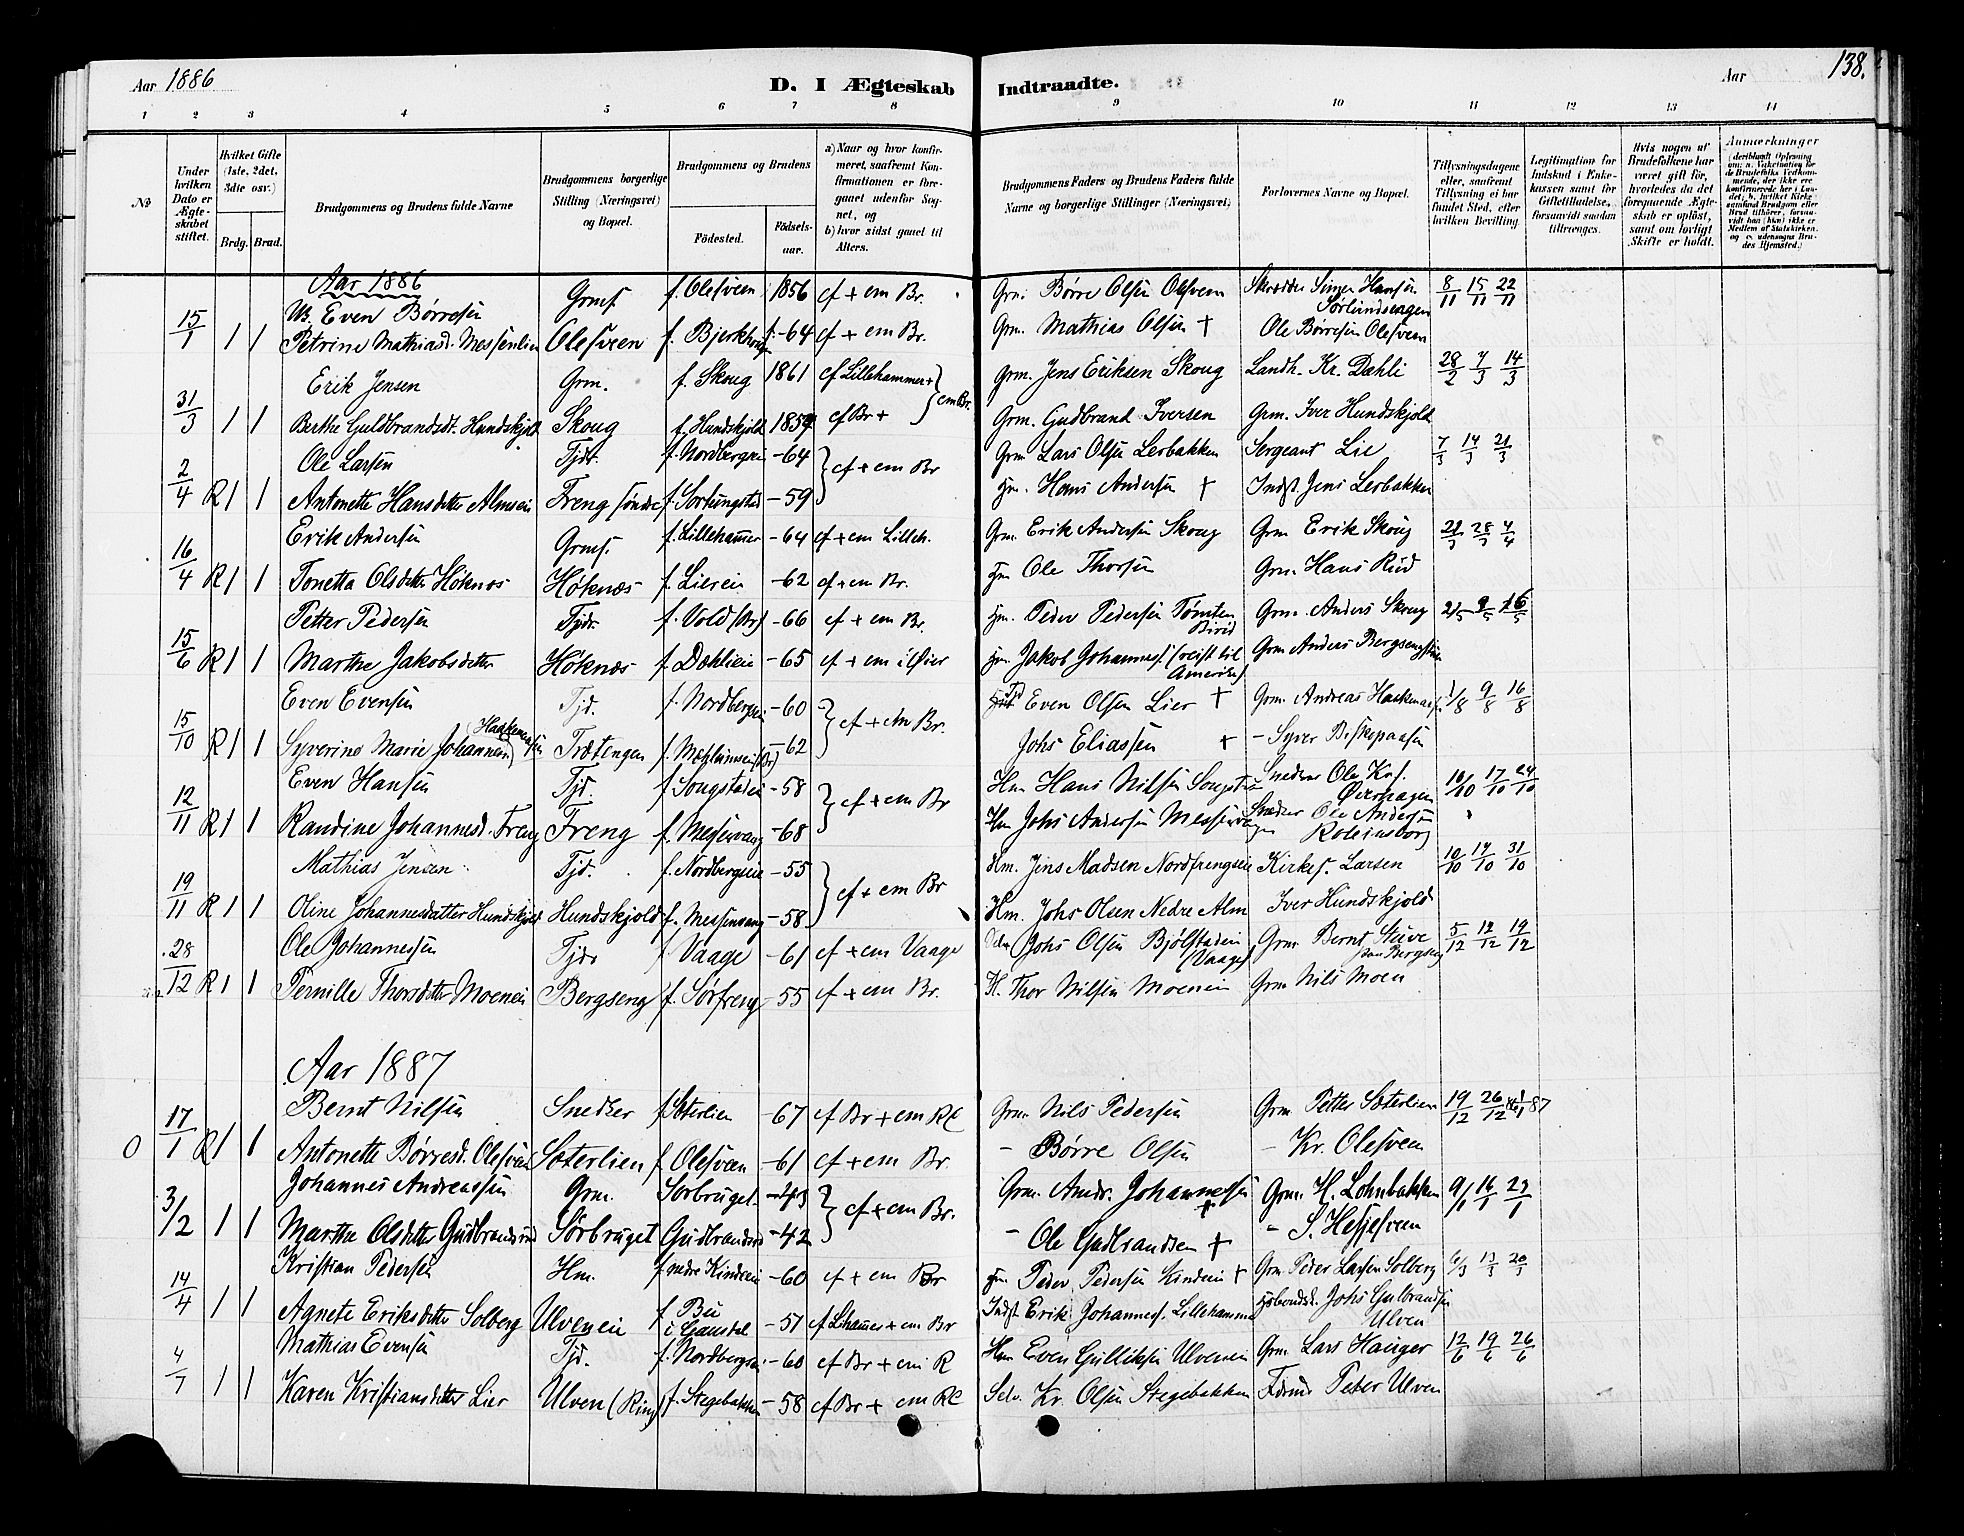 Aar 1886
D. I Ægteskab Indtraadte.
Aar 138.
1 2 3 4 5 6 7 8 9 10 11 12 13 14
No
Under hvilken Dato er Ægteskabet stiftet.
Hvilket Gifte (1ste, 2det, 3die osv.)
Brdg. Brud.
Brudgommens og Brudens fulde Navne
Brudgommens borgerlige Stilling (Næringsvei) og Bopæl.
Brudgommens og Brudens
Fødested.
Fødselsaar.
a) Naar og hvor konfirmeret, saafremt Konfirmationen er foregaaet udenfor Sognet, og
b) hvor sidst gaaet til Alters.
Brudgommens Faders og Brudens Faders fulde Navne og borgerlige Stillinger (Næringsvei)
Forlovernes Navne og Bopæl.
Tillysningsdagene eller, saafremt Tillysning ei har fundet Sted, efter hvilken Bevilling.
Legitimation for Indskud i Enkekassen samt for Giftetilladelse, forsaavidt saadan tiltrænges.
Hvis nogen af Brudefolkene har været gift før, hvorledes da det foregaaende Ægteskab er opløst, samt om lovligt Skifte er holdt.
Anmærkninger
Aar 1886
Even Børresen Grmf. f. Olesveen 1856 cf + em Br. Grm. Børre Olsen Olesveen 8/11 15/11 22/11
15/1 1 1 Petrine Mathiasd. Messenlien Olesveen f. Bjerkhoug -64 cf + em Br. Grm. Mathias Olsen † Ole Børresen Olesveen
Erik Jensen Grm. f. Skoug 1861 cf Lillehammer + Grm. Jens Eriksen Skoug Landh. Kr. Dæhli 28/2 7/3 14/3
31/3 1 1 Berthe Guldbrandsdt. Hundskjold Skoug f. Hundskjold 1859 cf Br + em Br. Grm. Gudbrand Iversen Grm. Iver Hundskjold
Ole Larsen Tjdt. f. Nordbergeie -64 cf + em Br Grm Lars Olsen Lerbakken Sergeant Lie 7/3 14/3 21/3
2/4 R 1 1 Antonette Hansdatter Almseie Freng søndre -59 Hm. Hans Andersen † Indst. Jens Lerbakken
Erik Andersen Grmf. f. Lillehammer -64 cf + em Lilleh. Grm. Erik Andersen Skoug Grm Erik Skoug 21/3 28/3 4/4
16/4 R 1 1 Tonetta Olsdatter Høknes Høknæs f. Liereie -62 cf + em Br. Hm Ole Thorsen Grm. Hans Rud
Petter Pedersen Tjdr. f. Vold (Br) -66 cf + em Br. Hm. Peder Pedersen Tømten Birid Grm. Anders Skoug 2/5 9/5 16/5
15/6 R 1 1 Marthe Jakobsdatter Høknæs f. Dæhlieie -65 cf + em i Øier Hm. Jakob Johannesf. (reist til Amerika) Grm Anders Bergseng
Even Evensen Tjd. f. Nordbergseie -60 cf + em Br. Even Olsen Lier † Grm. Andreas Haakenaasen 1/8 9/8 16/8
15/10 R 1 1 Syverine Marie Johannesd Haakenaasen Trætengen f. Mæhlumseie (Br) -62 Johs Eliassen † - Syver Biskopaasen
Even Hansen Tjd. f. Songstadeie -58 cf + em Br Hm Hans Nilsen Songstad Snedker Ole Knf. Øverhagen 10/10 17/10 24/10
12/11 R 1 1 Randine Johannesd. Freng Freng f. Messenvang -68 Hm Johs Andersen Snedker Ole Andersen Roleinsborg
Mathias Jensen Tjd. f. Nordbergseie -55 cf + em Br Hm. Jens Madsen Nordfrengseie Kirkef. Larsen 10/10 17/10 31/10
19/11 R 1 1 Oline Johannesdatter Hundskjold Hundskjold f. Messenvang -58 Hm. Johs Olsen Nedre Alm Iver Hundskjold
Ole Johannessen Tjdr f Vaage -61 cf + em Vaage Johs Olsen Bjølstadeie (Vaage) Grm. Bernt Steive Bergseng 5/12 12/12 19/12
28/12 R 1 1 Pernille Thorsdatter Moeneie Bergseng f. Sørfreng -55 cf + em Br. H. Thor Nilsen Moeneie Grm Nils Moen
Aar 1887
Bernt Nilsen Snedker f Sæterlien -67 cf Br + em RC Grm. Nils Pedersen Grm. Petter Sæterlien 19/12 26/12 1/1 87
O 17/1 R 1 1 Antonette Børresd. Olesveen Sæterlien f Olesveen -61 cf + em Br. - Børre Olsen - Kr. Olesveen
Johannes Andreassen Grm. Sørbruget -43 cf + em Br. Grm. Andr. Johannessen † Grm. H. Lohnbakken 9/1 16/1 23/1
3/2 1 1 Marthe Olsdatter Gudbrandsrud Sørbruget Gudbrandsrud -42 - Ole Gudbrandsen † - S. Hesjesveen
Kristian Pedersen Hm. -60 cf + em Br Hm. Peder Pedersen Kindseie † Grm. Peder Larsen Solberg 6/3 13/3 20/3
14/4 1 1 Agnete Eriksdatter Solberg Ulveneie f Bu i Gausdal -57 cf Lhamer + em Br Indst. Erik Johannesf. Lillehammer Johs Gulbrandsen Ulven
Mathias Evensen Tjd. f. Nordbergseie -60 cf Br + em R Hm Even Gulliksen Ulveneie Grm. Lars Hauger 12/6 19/6 26/6
4/7 1 1 Karen Kristiansdatter Lier Ulven (Ring) f. Stegebakken -58 cf Br + em RC Selv. Kr. Olsen Stegebakken Peter Ulven